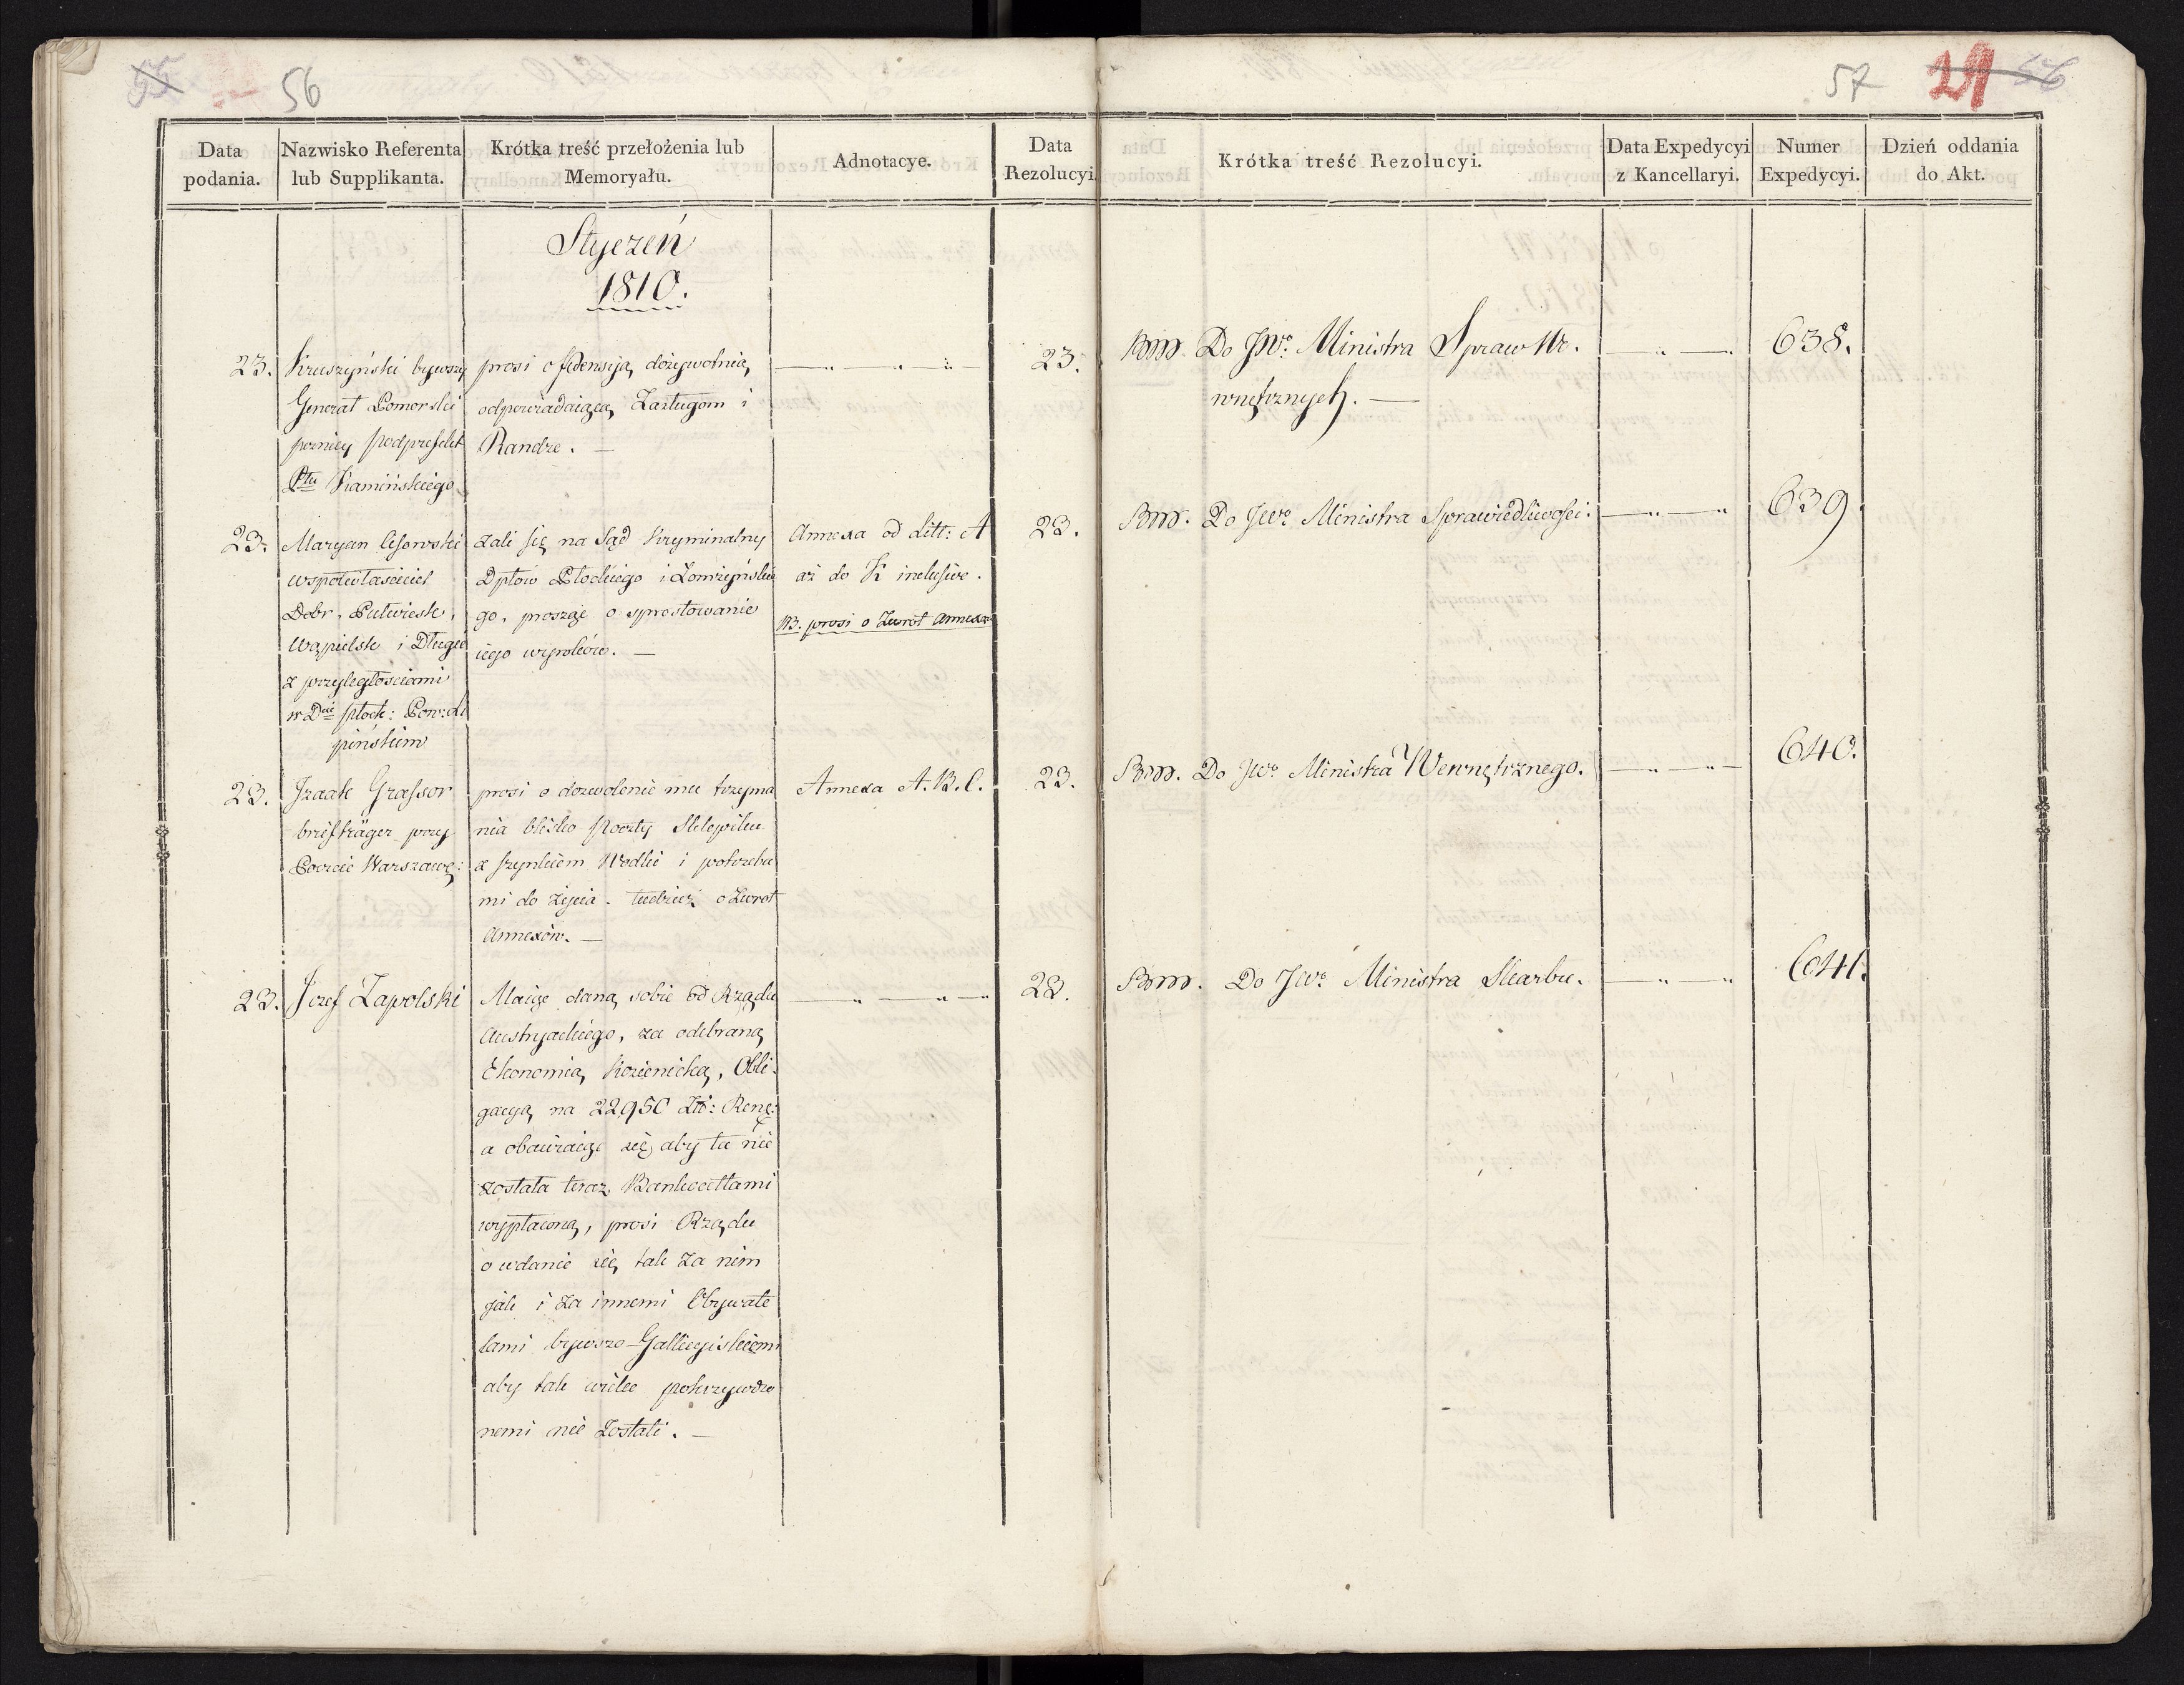 55
56
57
29
56
Data podania.
Nazwisko Referenta lub Supplikanta.
Krótka treść przełożenia lub Memoryału.
Adnotacye.
Data Rezolucyi.
Krótka treść Rezolucyi.
Data Expedycyi z Kancellaryi.
Numer Expedycyi.
Dzień oddania do Akt.
Styczeń
1810.
23.
Kruszyński bywszy
Generał Pomorski
pozniey Podprefekt
Ptu Kamińskiego
prosi o Pensyią dożywotnią
odpowiadaiącą Zasługom i
Randze. —
23.
Bm. Do JWo. Ministra Spraw We-
wnętrznych. —
638.
23.
Maryan Cissowski
współwłaściciel
Dobr,
Wąpielsk i Długie
z przyległościami
w Dcie Płock: Pow: Li
pińskim
Zali się na Sąd Kryminalny
Dptów Płockiego i Łomżyńskie
go, prosząc o sprostowanie
iego wyroków. —
Annexa od Litt: A
aż do K inclusive.
NB. prosi o Zwrot Annexów
23.
Bm. Do JWo Ministra Sprawiedliwości.
639.
23.
Izaak Grassor
briefträger przy
Poczcie Warszaws:
prosi o dozwolenie mu trzyma
nia blisko Poczty Sklepiku
z szynkiem Wodki i potrzeba
mi do życia. tudzież o Zwrot
Annexów. —
Annexa A. B. C.
23.
Bm. Do JWo Ministra Wewnętrznego.
640.
23.
Jozef Zapolski
Maiąc daną sobie od Rządu
Austryackiego, za odebraną
Ekonomią Kozienicką, Obli-
gacyą na 22950 Zło: Reńs:
a obawiaiąc się, aby ta nie
została teraz Bankocetlami
wypłaconą, prosi Rządu
o wdanie się tak za nim
jak i za innemi Obywate
lami bywszo-Gallicyiskiemi
aby tak wielce pokrzywdzo
nemi nie Zostali. —
23.
Bm. Do JWo. Ministra Skarbu.
641.